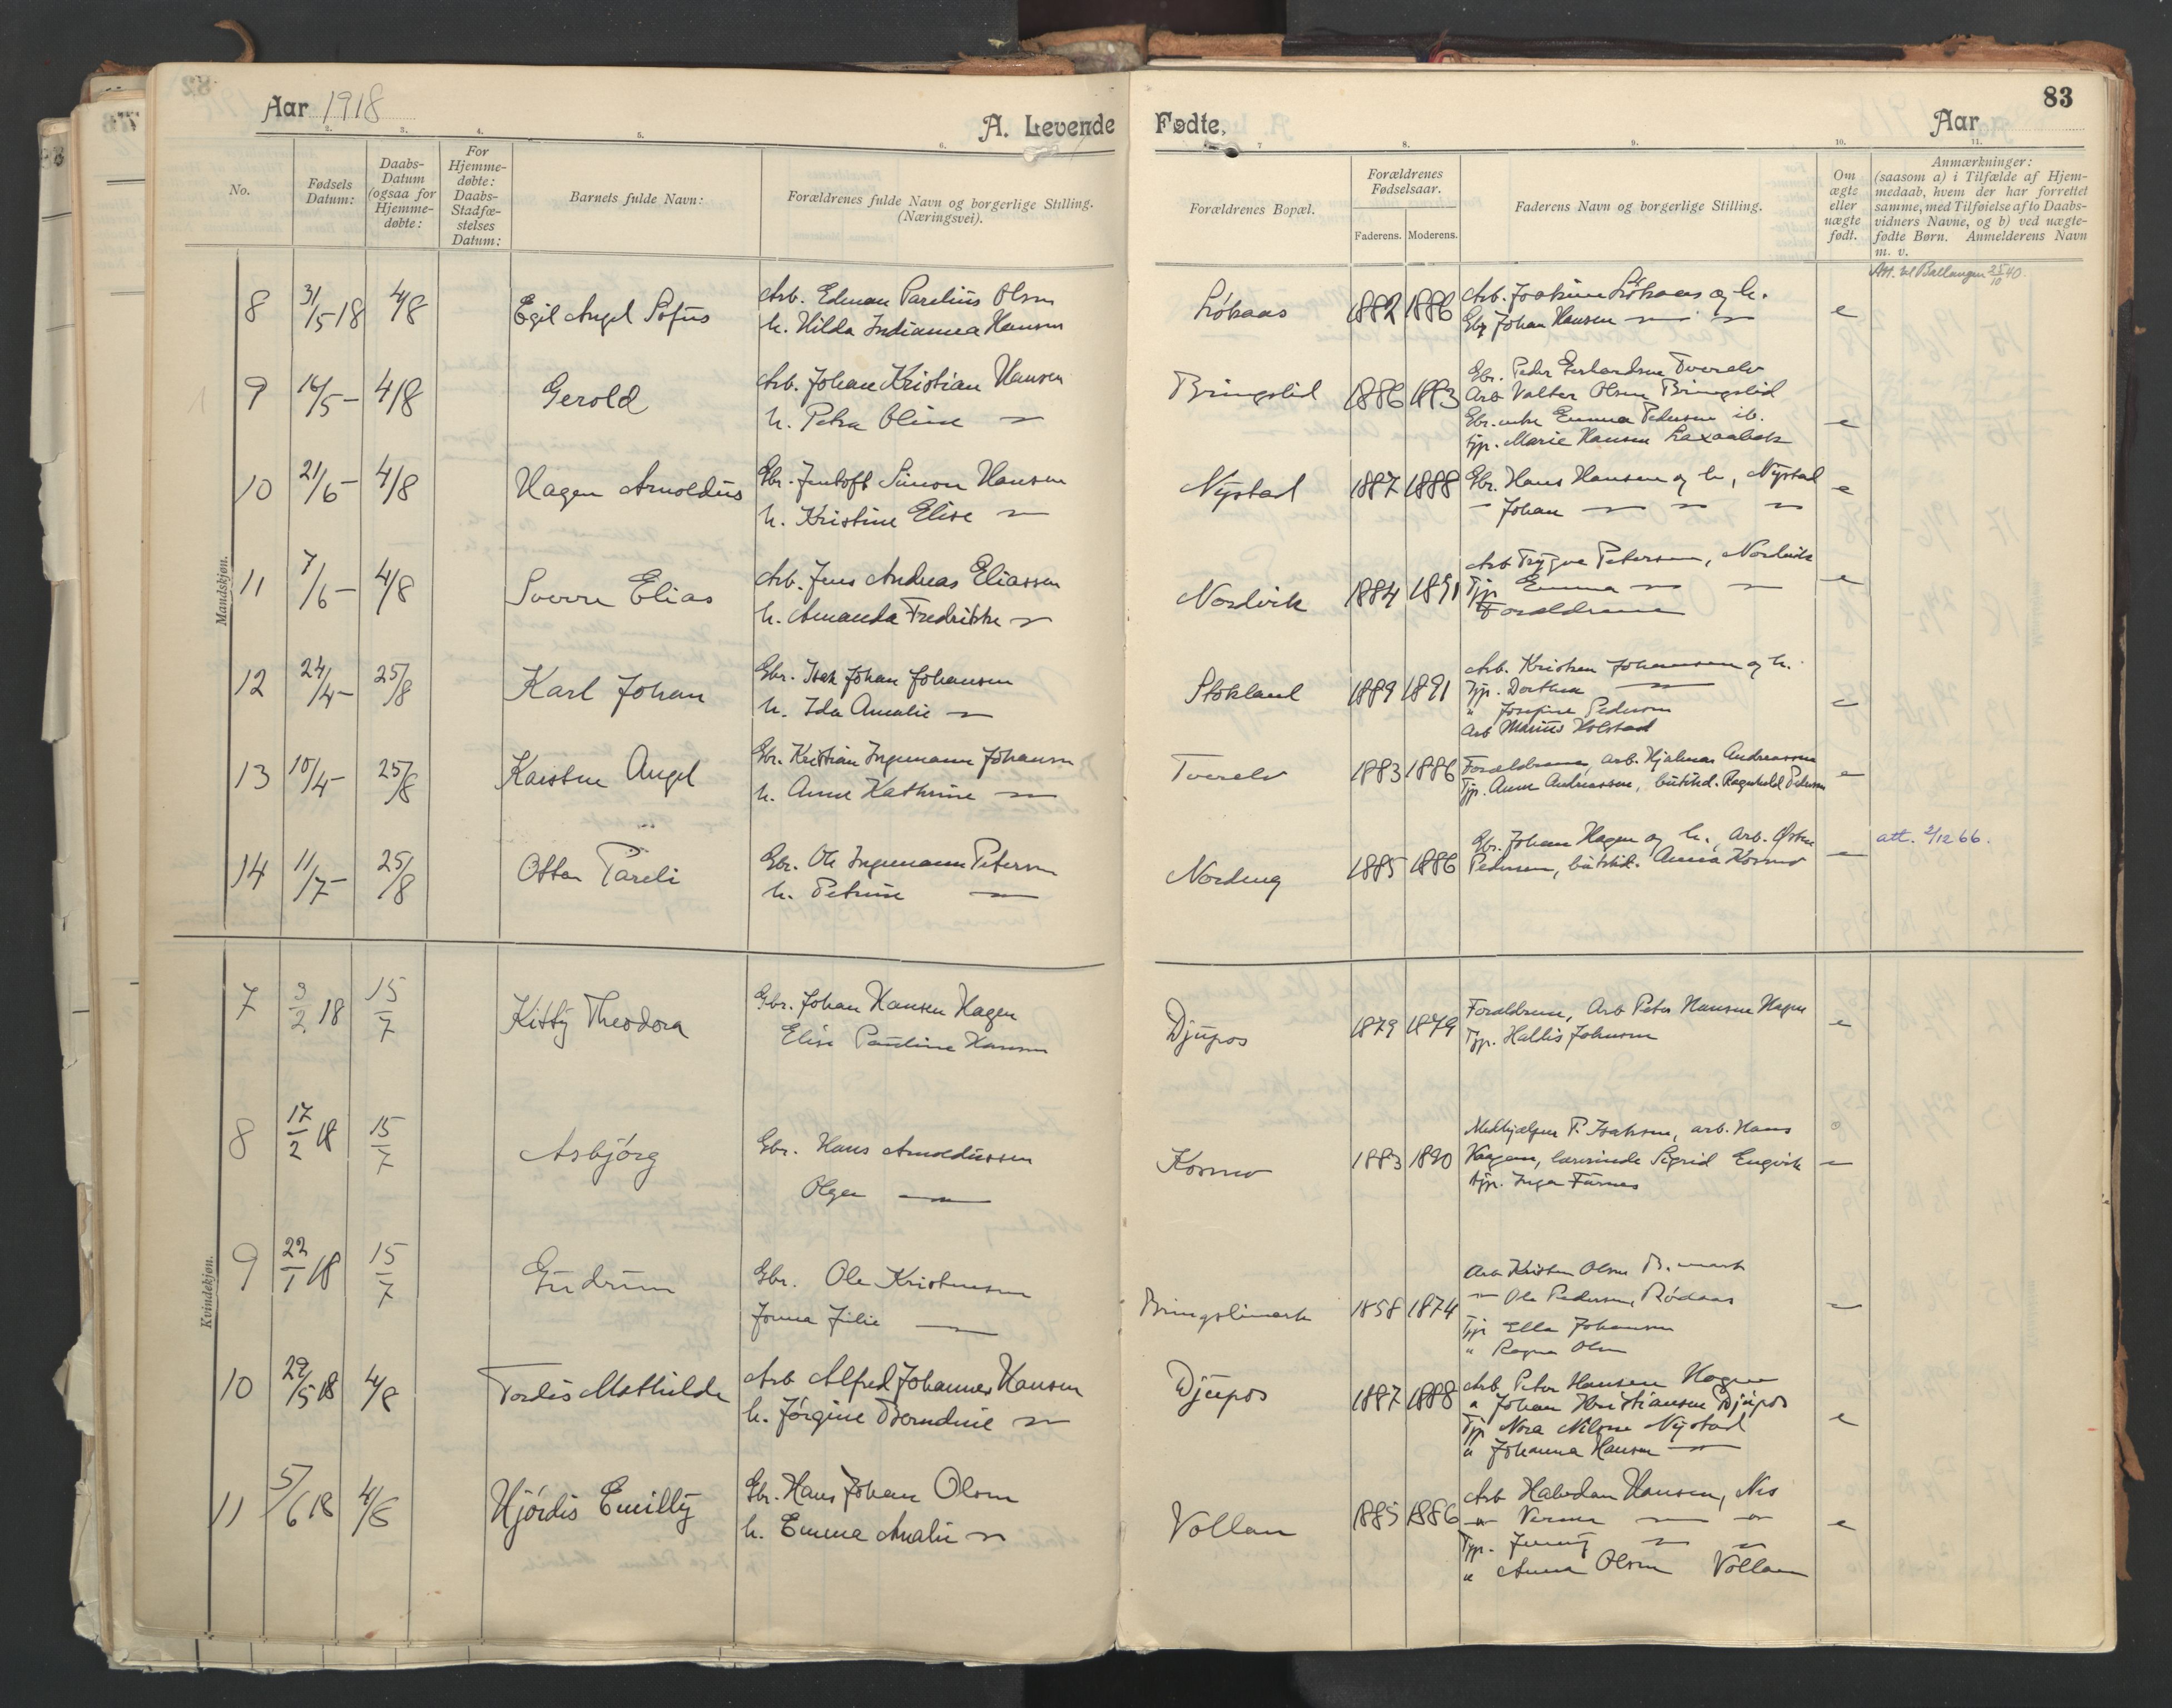 83
Aar 1918
A. Levende
Fødte,
Aar
2. 3. 4. 5. 6. 7 8. 9. 10. 11.
No.
Fødsels Datum:
Daabs-Datum (ogsaa for Hjemme-døbte:
For Hjemme-døbte: Daabs-Stadfæ-stelses Datum:
Barnets fulde Navn:
Forældrenes fulde Navn og borgerlige Stilling. (Næringsvei).
Forældrenes Bopæl.
Forældrenes Fødselsaar.
Faderens. Moderens.
Faderens Navn og borgerlige Stilling.
Om ægte eller uægte født.
Anmærkninger:
(saasom a) i Tilfælde af Hjem-
medaab, hvem der har forrettet
samme, med Tilføielse af to Daabs-
vidners Navne, og b) ved uægte-
fødte Børn. Anmelderens Navn
m. v.
Mandskjøn.
8 31/5 18 4/8 Egil Angel Sofus
Arb. Edman Parelius Olsen
h. Hilda Indianna Hansen
Løkaas 1882 1886
Arb. Joakim Løkaas og h.
Gbr Johan Hansen — —
e
Att. til Ballangen 25/10 40.
9 16/5 – 4/8 Gerold
Arb. Johan Kristian Hansen
h. Petra Oline —
Bringslid 1886 1883
Gbr. Peder Gerhardsen Tverelv
Arb Valter Olsen Bringslid
Gbr. enke Emma Pedersen ib.
tjp. Marie Hansen Laxaabak
e
10 21/6 – 4/8 Hagen Arnoldus
Gbr. Jentoft Simon Hansen
h. Kristine Elise —
Nystad 1887 1888
Gbr. Hans Hansen og h, Nystad
– Johan — — —
e
11 7/6 – 4/8 Sverre Elias
Arb. Jens Andreas Eliassen
h. Amanda Fredrikke —
Nordvik 1884 1891
Arb Trygve Petersen, Nordvik
Tjp Emma — —
Forældrene
e
12 24/4 – 25/8 Karl Johan
Gbr. Isak Johan Johansen
h. Ida Amalie —
Stokland 1889 1891
Arb. Kristen Johansen og h.
Tjp. Dorthea —
" Josefine Pedersen
Arb Marius Kolstad
e
13 10/4 – 25/8 Karsten Angel
Gbr. Kristian Ingemann Johansen
h. Anne Kathrine —
Tverelv 1883 1886
Forældrene, arb. Hjalmar Andreassen
Tjp. Anna Andreassen, butikd. Ragnhild Pedersen
e
14 11/7 – 25/8 Ottar Pareli
Gbr. Ole Ingemann Petersen
h. Petrine —
Nordeng 1885 1886
Gbr. Johan Hagen og h., Arb. Østen
Pedersen, butikd. Anna Kosmo
—
att. 2/12 66.
Kvindekjøn.
7 3/2 18 15/7 Kitty Theodora
Gbr. Johan Hansen Hagen
Elise Pauline Hansen
Djupos 1879 1879
Forældrene, Arb Peter Hansen Hagen
Tjp. Haldis Johnsen
e
8 17/2 18 15/7 Asbjørg
Gbr. Hans Arnoldussen
Olga —
Kosmo 1883 1890
Medhjælper P. Isaksen, arb. Hans
Vaagan, lærerinde Sigrid Engvik
tjp. Inga Furnes
—
9 22/1 18 15/7 Gudrun
Gbr. Ole Kristensen
Julie —
Bringslimark 1858 1874
Arb Kristen Olsen B.mark
— Ole Pedersen, Rødaas
Tjp Ella Johansen
" Ragna Olsen
—
10 29/5 18 4/8 Tordis Mathilde
Arb Alfred Johannes Hansen
h. Jørgine Berndine —
Djupos 1887 1888
Arb. Peter Hansen Hagen
" Johan Kristiansen Djupos
Tjp Nora Nilsen Nystad
" Johanna Hansen —
e
11 5/6 18 4/8 Hjørdis Emilly
Gbr. Hans Johan Olsen
h. Emma Amalie —
Vollan 1885 1886
Arb Halvdan Hansen, Nes
— Verner — —
Tjp. Jenny — —
" Anna Olsen Vollan
e